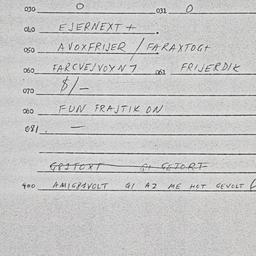 030 0 031 0
040 EJERNEXT +
050 AVOXFRIJER / FARAXTOGT
060 FARCVEJVOXN 7 061 FRIJERDIK
070 $/-
080 FUN FRAJTIK ON
081. —
GEJTORT
400 AMIGRAVOLT GI AJ ME HOT GEVOLT